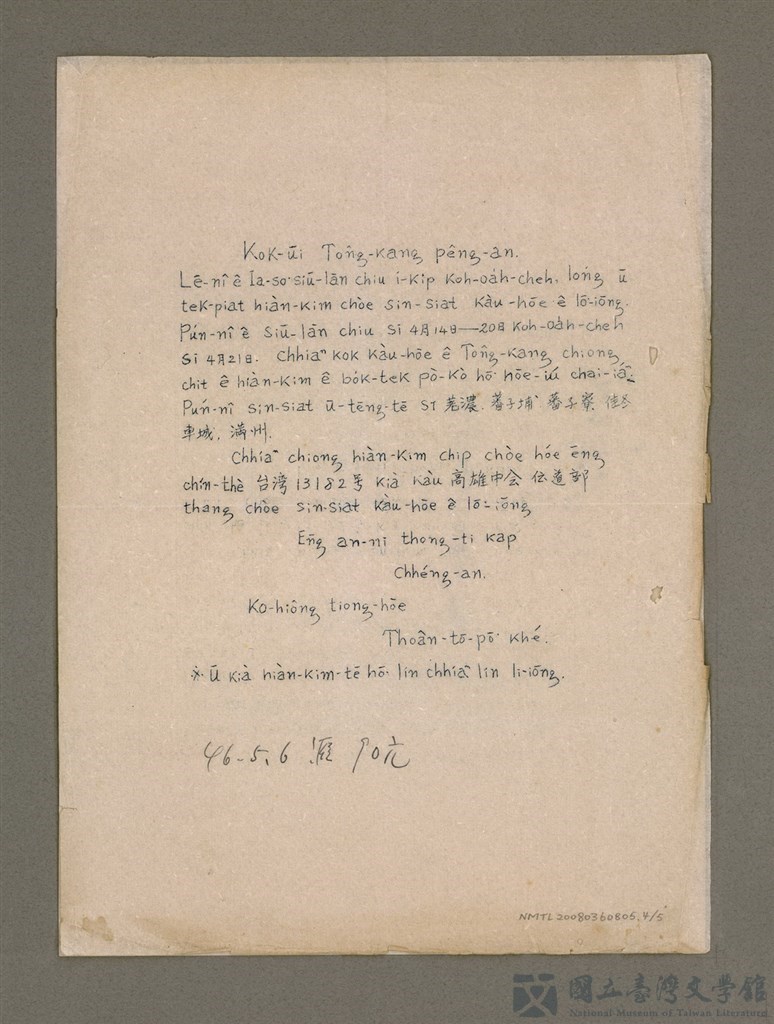 Kok-ūi Tông-kang pêng-an.
Lē-nî ê Ia-so͘ siū-lān chiu í-ki̍p Koh-oa̍h-cheh, lóng ū
tek-piat hiàn-kim chòe sin-siat kàu-hōe ê lō͘-iōng.
Pún-nî ê siū-lān chiu sī 4月14日—20日 Koh-oa̍h-cheh
sī 4月21日. Chhiáⁿ kok kàu-hōe ê Tông-kang chiong
chit ê hiàn-kim ê bo̍k-tek pò-kò hō͘ hōe-iú chai-iáⁿ
Pún-nî sin-siat ū-tēng-tē sī 荖濃. 蕃子埔 蕃子寮 佳冬
車城, 滿州.
Chhiáⁿ chiong hiàn-kim chip chòe hóe ēng
chín-thè 台湾13182号 kià kàu 高雄中会 伝道部
thang chòe sin-siat kàu-hōe ê lō͘-iōng
Ēng an-ni thong-ti kap
Chhéng-an.
Ko-hiông tiong-hōe
Thoân-tō-pō͘ khé.
※ Ū kià hiàn-kim-tē hō͘ lín chhiáⁿ lín lī-iōng.
46-5.6 匯 90元
NMTL20080360805.4/5
國立臺灣文學館
National Museum of Taiwan Literature